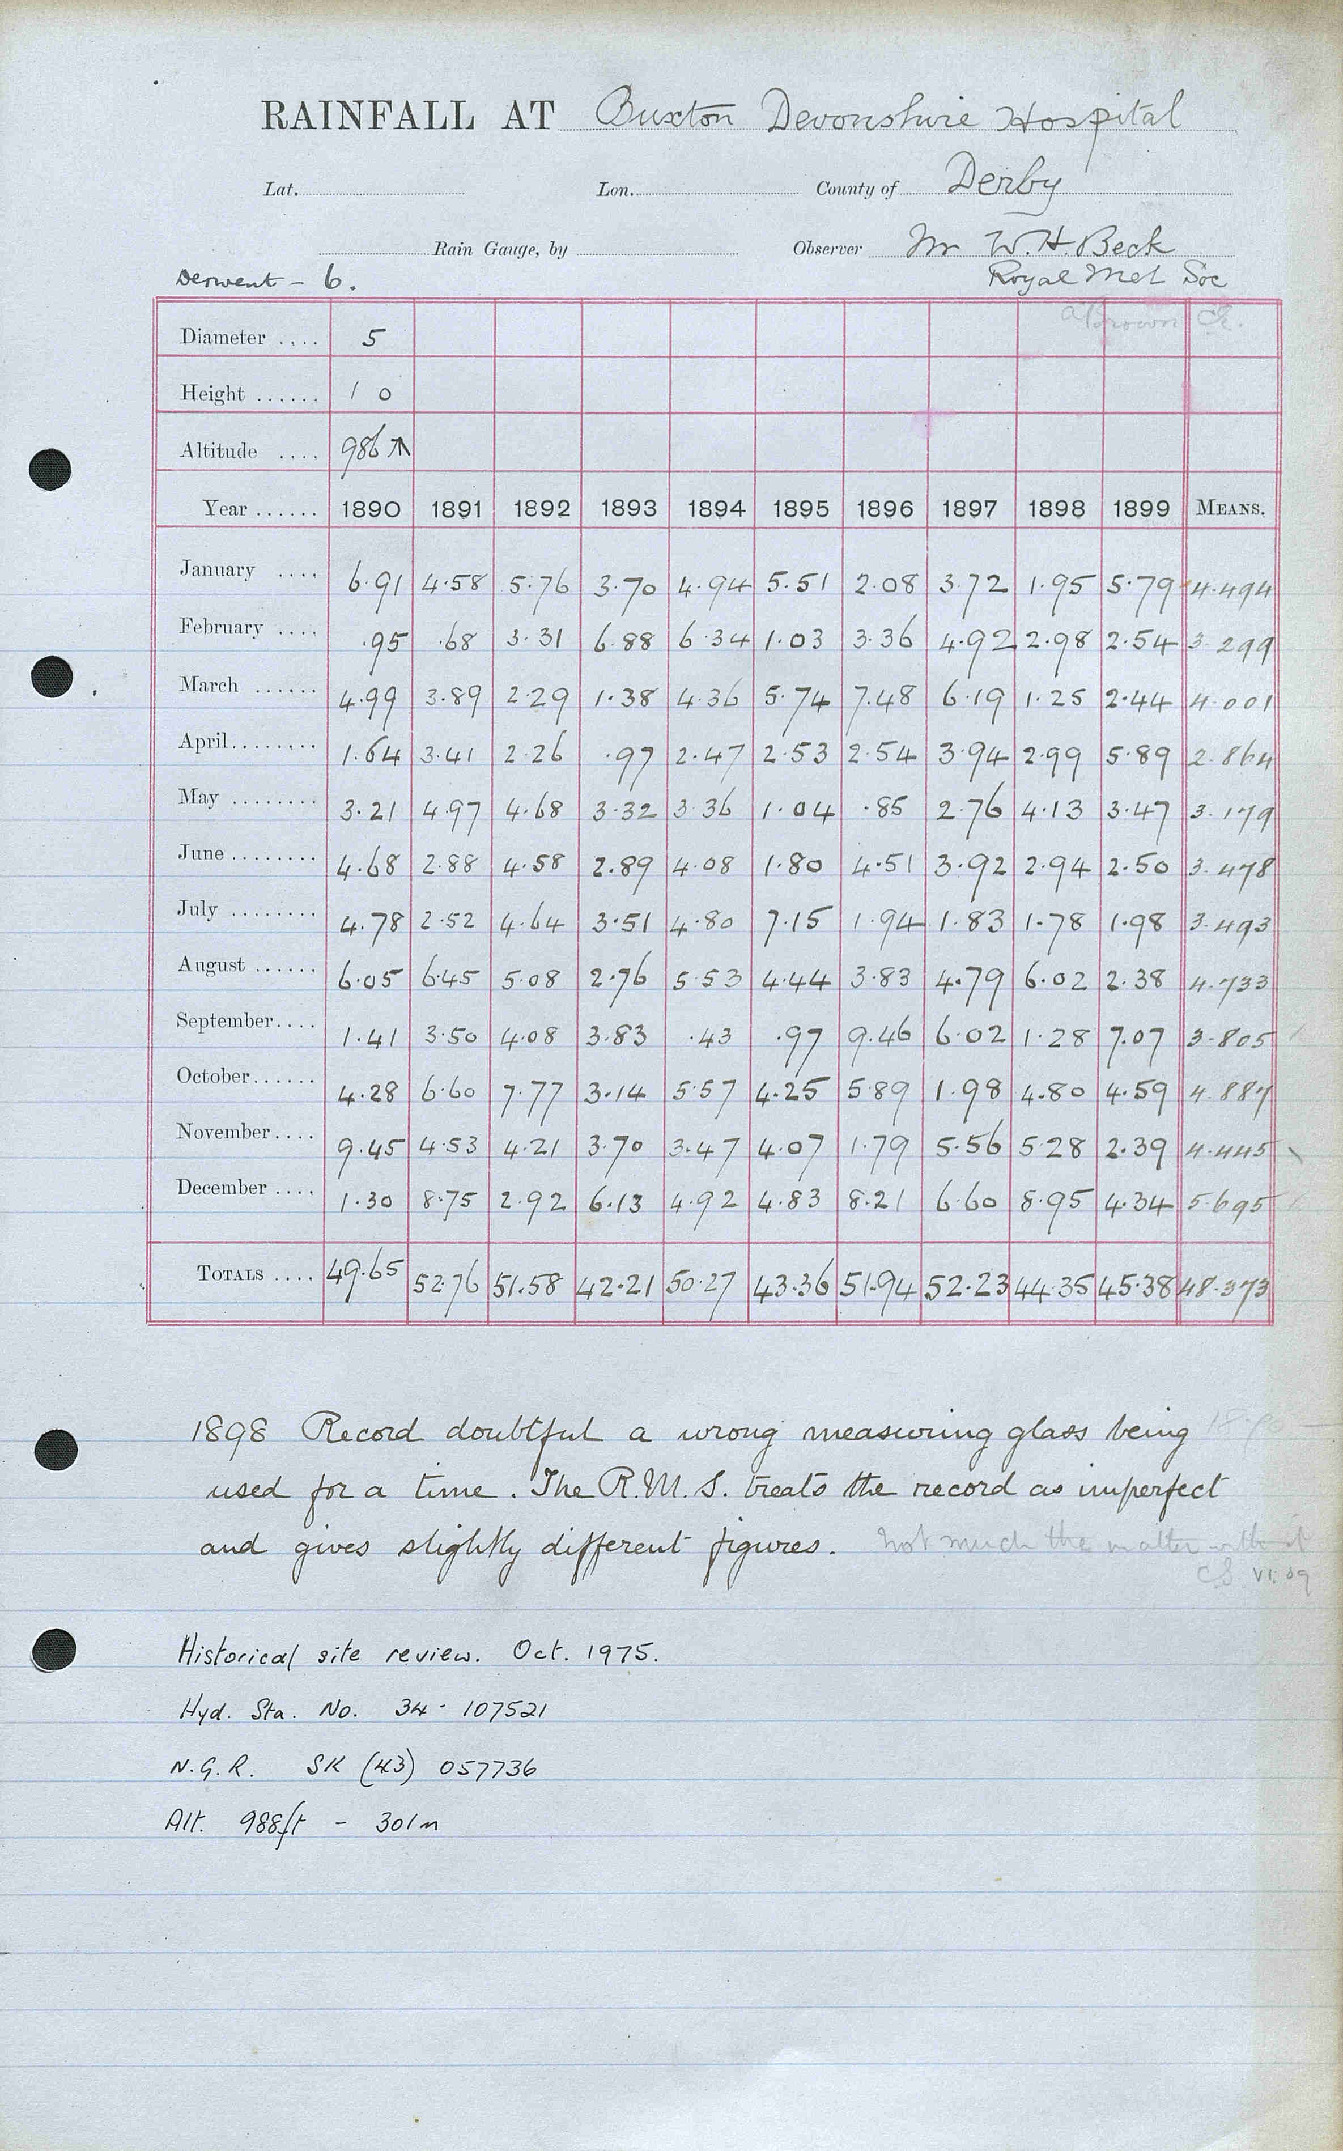 RAINFALL AT Buxton Devonshire Hospital
Lat. Lon. County of Derby
Rain Gauge, by Observer Mr W. H. Beck
Derwent – 6. Royal Met Soc
Diameter .... 5
Height ...... 1 0
Altitude .... 986
Year ...... 1890 1891 1892 1893 1894 1895 1896 1897 1898 1899 MEANS.
January .... 6.91 4.58 5.76 3.70 4.94 5.51 2.08 3.72 1.95 5.79 4.494
February .... .95 .68 3.31 6.88 6.34 1.03 3.36 4.92 2.98 2.54 3.299
March ...... 4.99 3.89 2.29 1.38 4.36 5.74 7.48 6.19 1.25 2.44 4.001
April........ 1.64 3.41 2.26 .97 2.47 2.53 2.54 3.94 2.99 5.89 2.864
May ........ 3.21 4.97 4.68 3.32 3.36 1.04 .85 2.76 4.13 3.47 3.179
June ........ 4.68 2.88 4.58 2.89 4.08 1.80 4.51 3.92 2.94 2.50 3.478
July ........ 4.78 2.52 4.64 3.51 4.80 7.15 1.94 1.83 1.78 1.98 3.493
August ...... 6.05 6.45 5.08 2.76 5.53 4.44 3.83 4.79 6.02 2.38 4.733
September.... 1.41 3.50 4.08 3.83 .43 .97 9.46 6.02 1.28 7.07 3.805
October...... 4.28 6.60 7.77 3.14 5.57 4.25 5.89 1.98 4.80 4.59 4.887
November.... 9.45 4.53 4.21 3.70 3.47 4.07 1.79 5.56 5.28 2.39 4.445
December .... 1.30 8.75 2.92 6.13 4.92 4.83 8.21 6.60 8.95 4.34 5.695
TOTALS .... 49.65 52.76 51.58 42.21 50.27 43.36 51.94 52.23 44.35 45.38 48.373
1898 Record doubtful a wrong measuring glass being
used for a time. The R.M.S. treats the record as imperfect
and gives slightly different figures. Not much the matter with it
CS VI.09
Historical site review. Oct. 1975.
Hyd. Sta. No. 34 - 107521
N.G.R. SK (43) 057736
Alt. 988ft – 301m